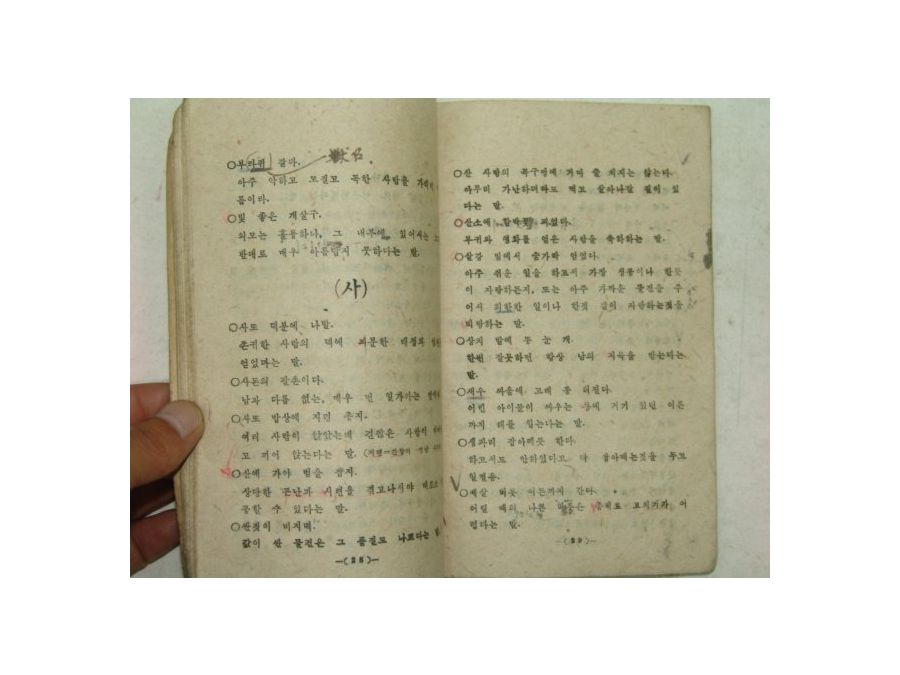 ○부라퀴 같다.
아주 악하고 모질고 독한 사람을
름이라.
○빛 좋은 개살구.
외모는 훌륭하나, 그 내부에 있어서는
반대로 매우 아름답지 못하다는 말.
(사)
○사또 덕분에 나발.
존귀한 사람의 덕에
얻었다는 말.
○사돈의 팔촌이다.
남과 다를 없는, 매우 먼 일가
○사또 밥상에 지렁 종지.
여러 사람이 앉았는데 건
고 끼어 앉는다는 말.
○산에 가야 범을 잡지.
상당한 곤난과 시련을 겪고나서야 비로소
공할 수 있다는 말.
○싼것이 비지떡.
값이 싼 물건은 그 품질도 나쁘다는 말
—(28)—
○산 사람의 목구멍에 거미 줄 치지는 않는다.
아무리 가난하더라도 먹고 살아나갈 길이 있
다는 말.
○산소에 함박꽃 피었다.
부귀와 영화를 얻은 사람을 축하하는 말.
○살강 밑에서 숟가락 얻었다.
아주 쉬운 일을 하고서 가장 성공이나 한듯
이 자랑하든지, 또는 아주 가까운 물건을 주
어서 희한한 일이나 한것 같이 자랑하는것을
비방하는 말.
○상지 밭에 똥 눈 개.
한번 잘못하면 항상 남의 지목을 받는다는
말.
○새우 싸움에 고래 등 터진다.
어린 아이들이 싸우는 데 거기 있던 어른
까지 해를 입는다는 말.
○생파리 잡아떼듯 한다.
하고서도 안하였다고 딱 잡아떼는것을 두고
일컬음.
○세살 버릇 여든까지 간다.
어릴 때의 나쁜 버릇은 좀체로 고치기가 어
렵다는 말.
—(29)—